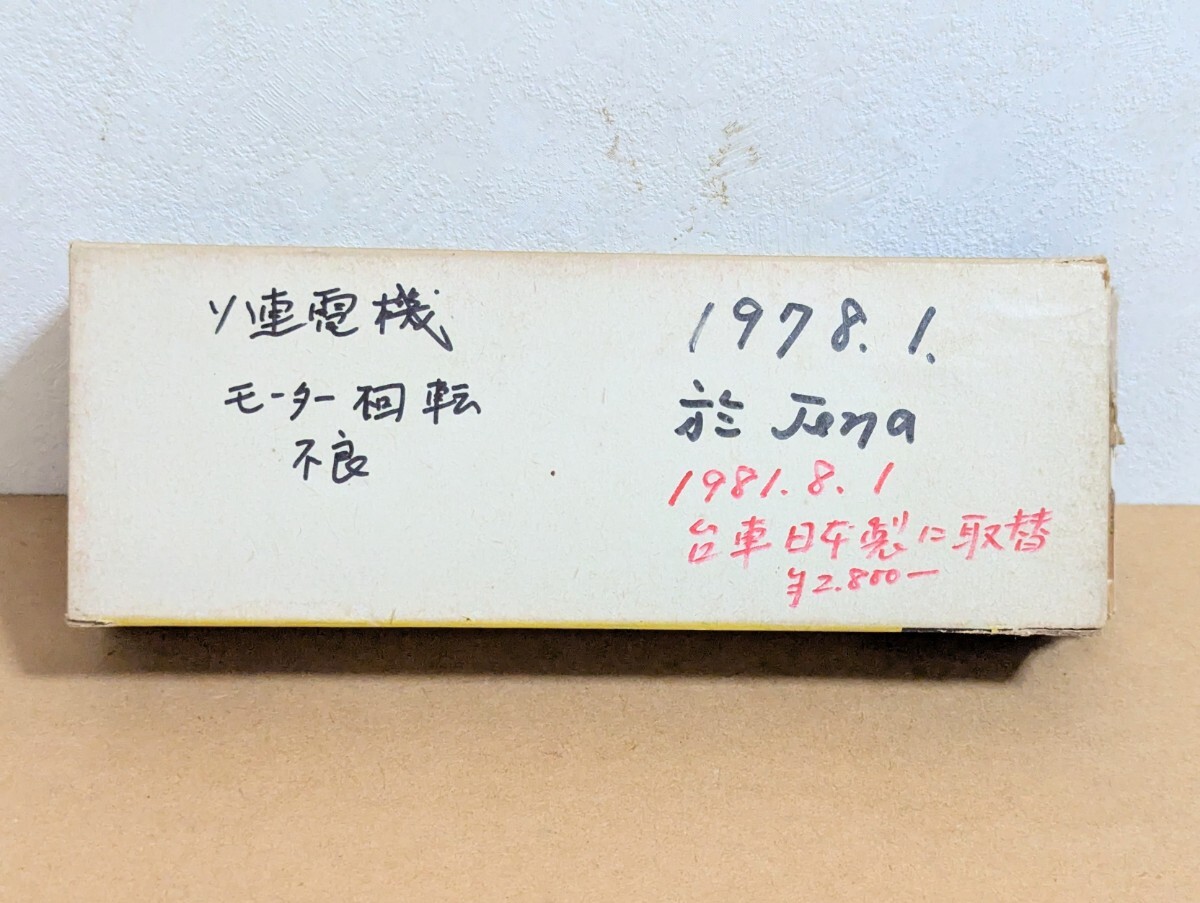 ソ連電機
モーター回転
不良
1978.1.
於 Jena
1981.8.1
台車日本製に取替
¥2.800ー